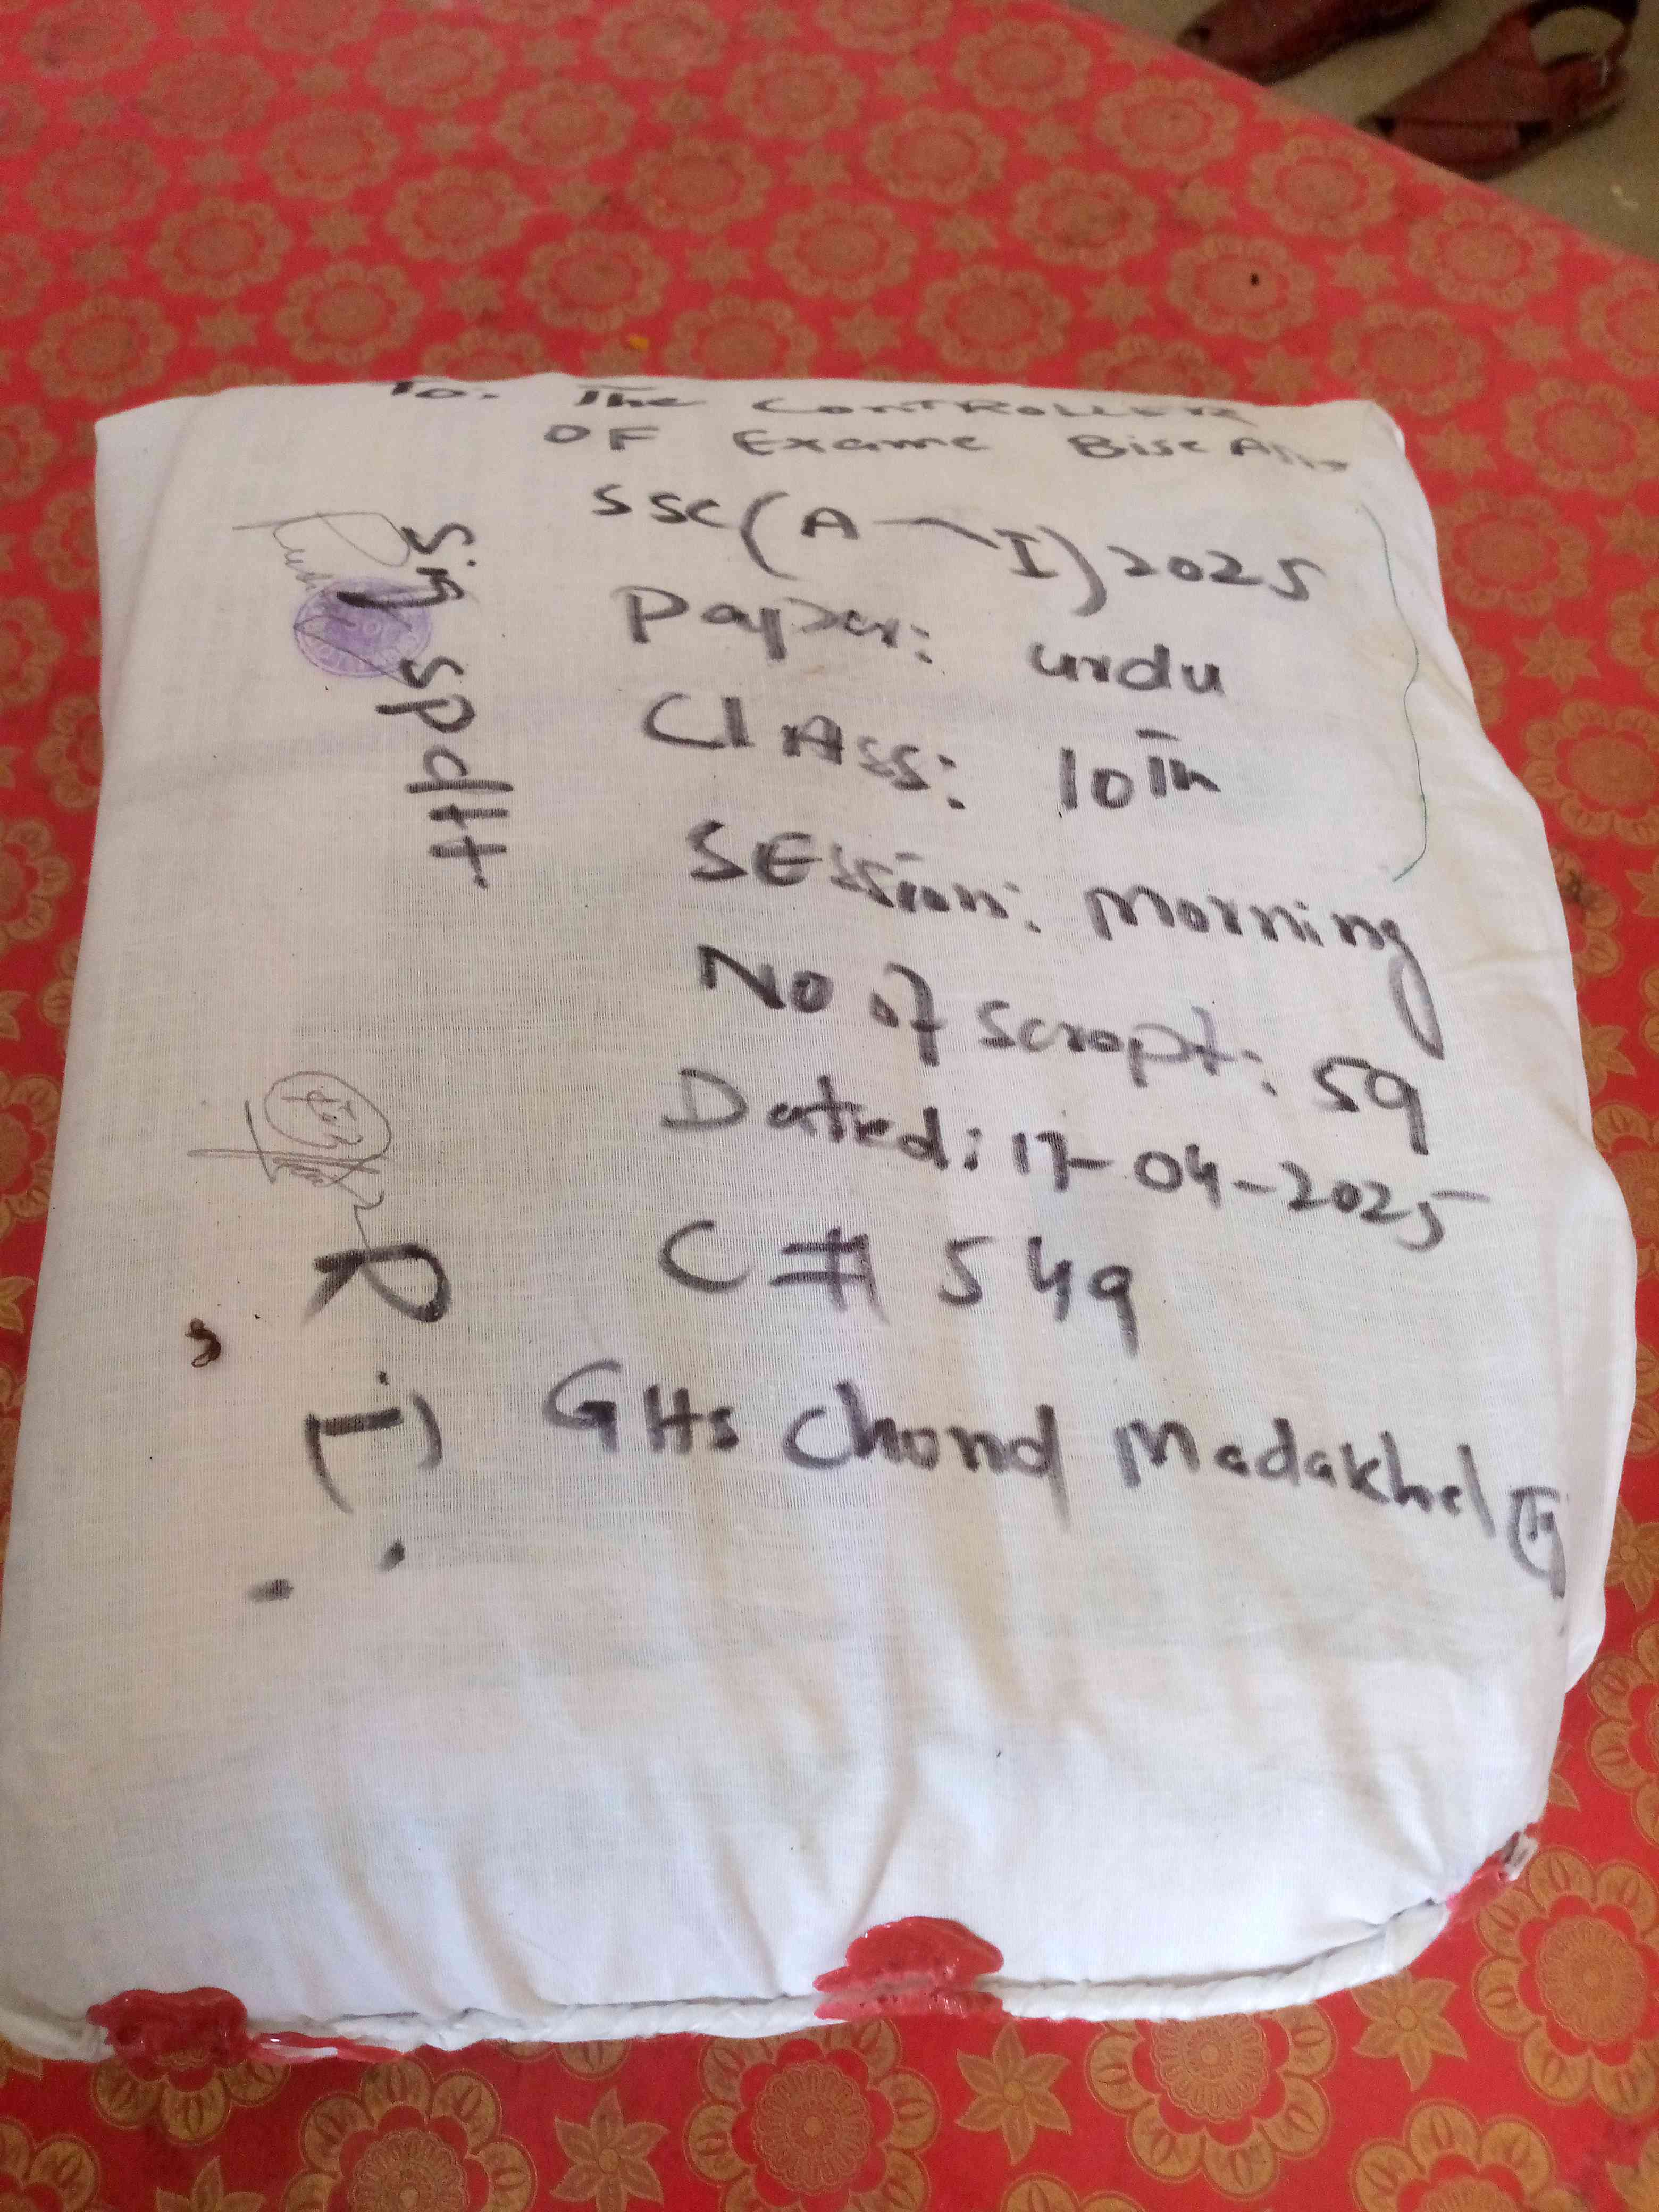 To. The CONTROLLER
OF Exame Bise
SSC (A-I) 2025
Paper: urdu
ClAss: 10Th
SEssion: morning
No of scropt: 59
Dated: 17-04-2025
C # 549
GHs Chond Madakhel
Sig spdtt.
R I)